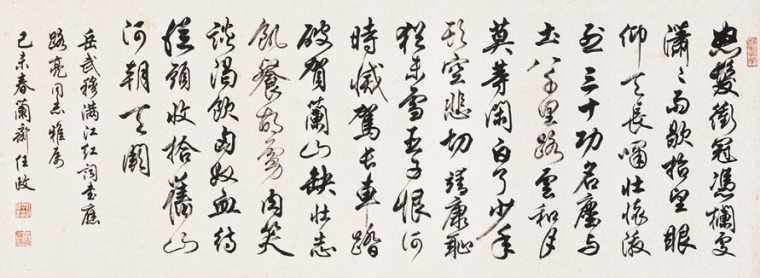 怒髮衝冠憑欄處
瀟〻雨歇抬望眼
仰天長嘯壯懷激
烈三十功名塵與
土八千里路雲和月
莫等閑白了少年
頭空悲切靖康恥
猶未雪臣子恨何
時滅駕長車踏
破賀蘭山缺壯志
飢餐胡虜肉笑
談渴飲匈奴血待
從頭收拾舊山
河朝天闕
岳武穆滿江紅詞書應
路亮同志雅屬
己未春蘭齋任政